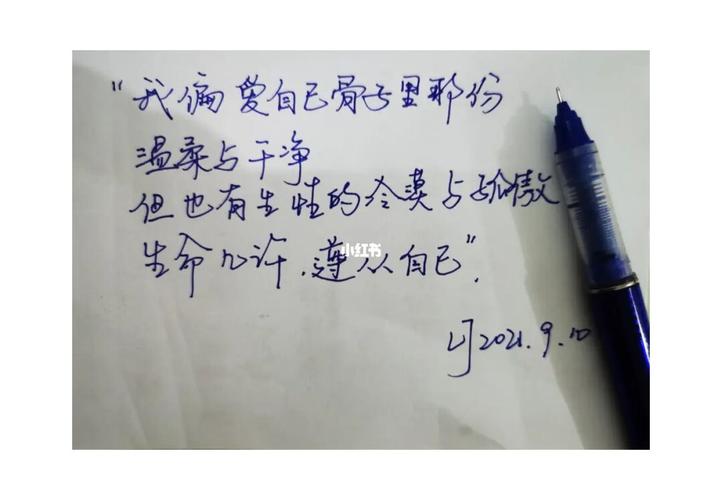 "我偏爱自己骨子里那份
温柔与干净
但也有生性的冷漠与骄傲
生命几许,遵从自己".
小红书
LJ 2021.9.10